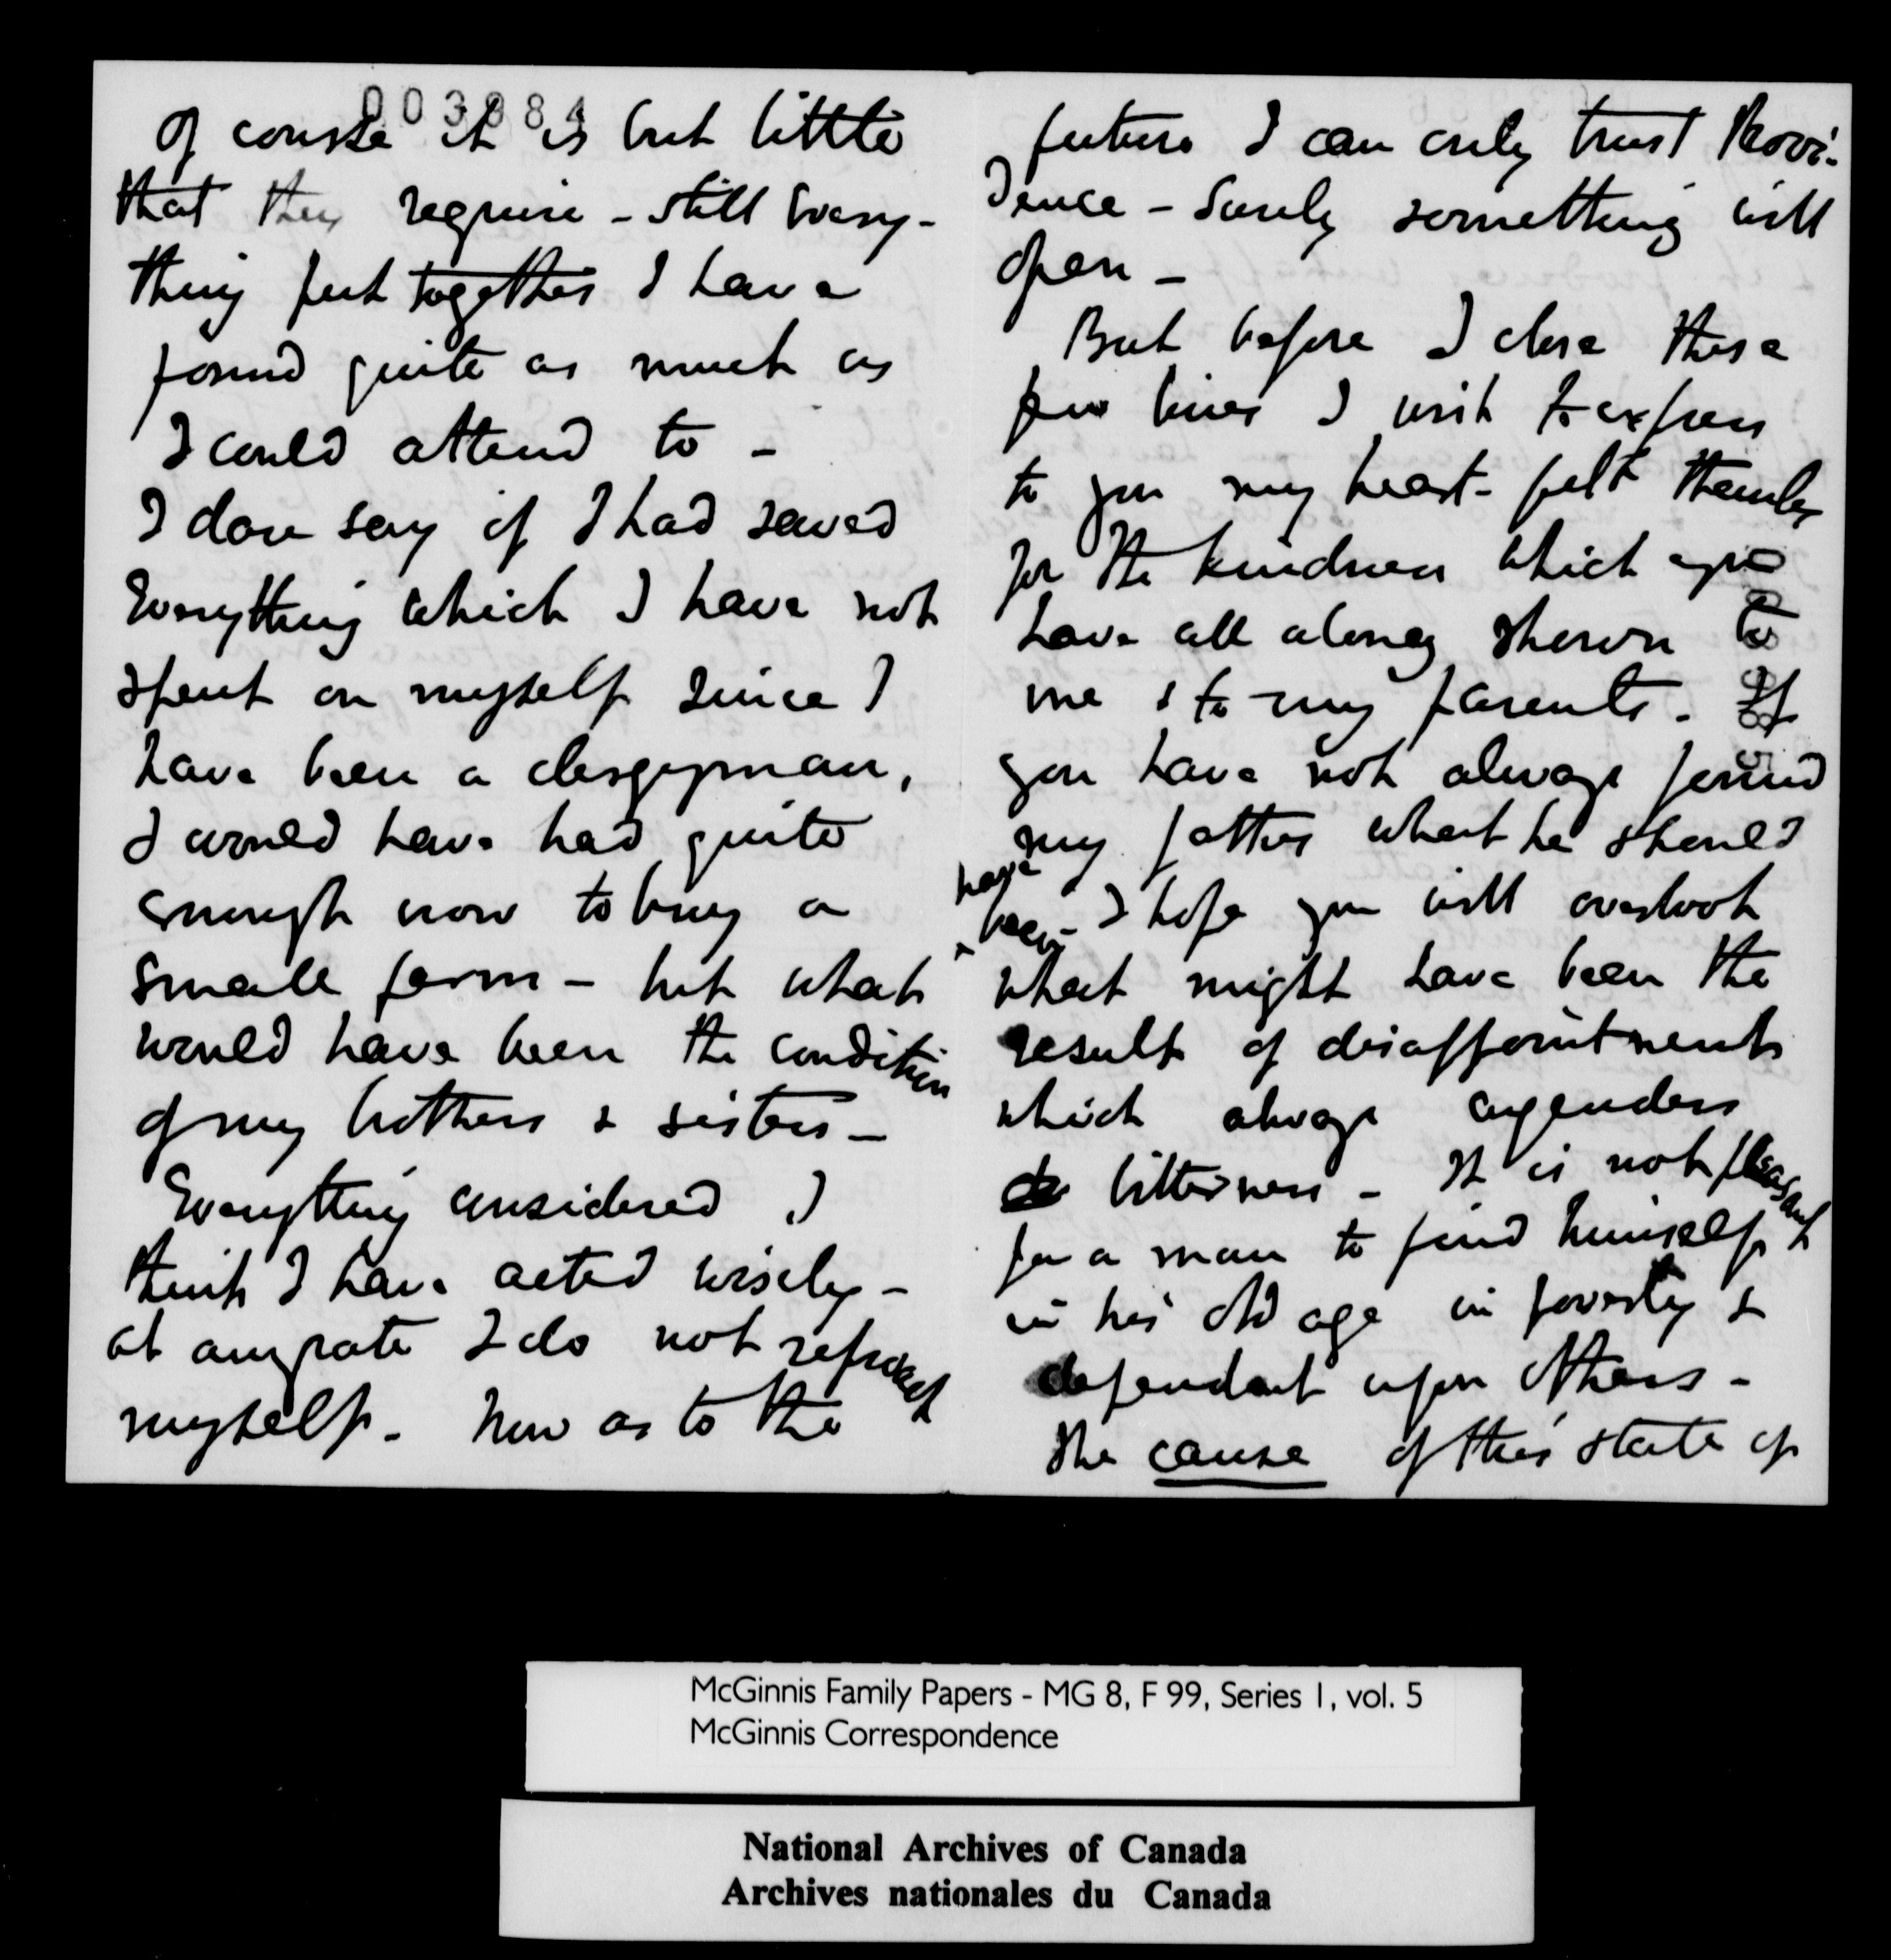 003884
Of course it is but little
that they require - still Every-
thing put together I have
found quite as much as
I could attend to -
I dare say if I had saved
Everything which I have not
spent on myself since I
have been a clergyman,
I would have had quite
enough now to buy a
small farm - but what
would have been the condition
of my brothers & sisters -
Everything considered I
think I have acted wisely -
at anyrate I do not reproach
myself. Now as to the
future I can only trust Provi-
dence - Surely something will
open -
But before I close these
few lines I wish to express
to you my heart-felt thanks
for the kindness which you
have all along shown to
me & to my parents. If
you have not always found
my father what he should
have
^ been - I hope you will overlook
what might have been the
result of disappointments
which always engenders
bitterness - It is not pleasant
for a man to find himself
in his old age in poverty &
dependant upon others -
The cause of this state of
McGinnis Family Papers - MG 8, F 99, Series 1, vol. 5
McGinnis Correspondence
National Archives of Canada
Archives nationales du Canada